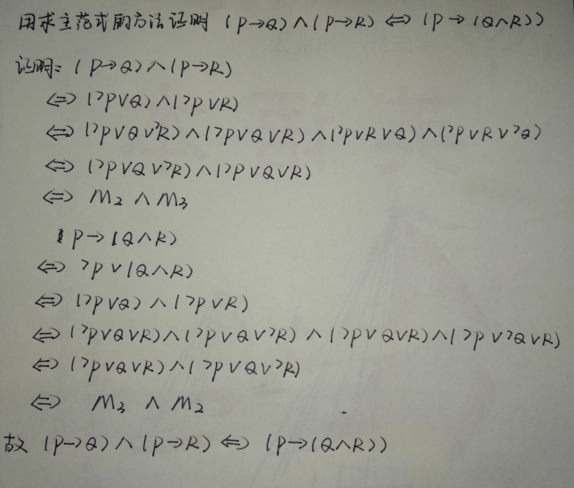 用求主范式的方法证明 (P→Q)∧(P→R)⇔(P→(Q∧R))
证明: (P→Q)∧(P→R)
⇔(¬P∨Q)∧(¬P∨R)
⇔(¬P∨Q∨¬R)∧(¬P∨Q∨R)∧(¬P∨R∨Q)∧(¬P∨R∨¬Q)
⇔(¬P∨Q∨¬R)∧(¬P∨Q∨R)
⇔ M2∧M3
P→(Q∧R)
⇔ ¬P∨(Q∧R)
⇔(¬P∨Q)∧(¬P∨R)
⇔(¬P∨Q∨R)∧(¬P∨Q∨¬R)∧(¬P∨Q∨R)∧(¬P∨¬Q∨R)
⇔(¬P∨Q∨R)∧(¬P∨Q∨¬R)
⇔ M3∧M2
故 (P→Q)∧(P→R)⇔(P→(Q∧R))